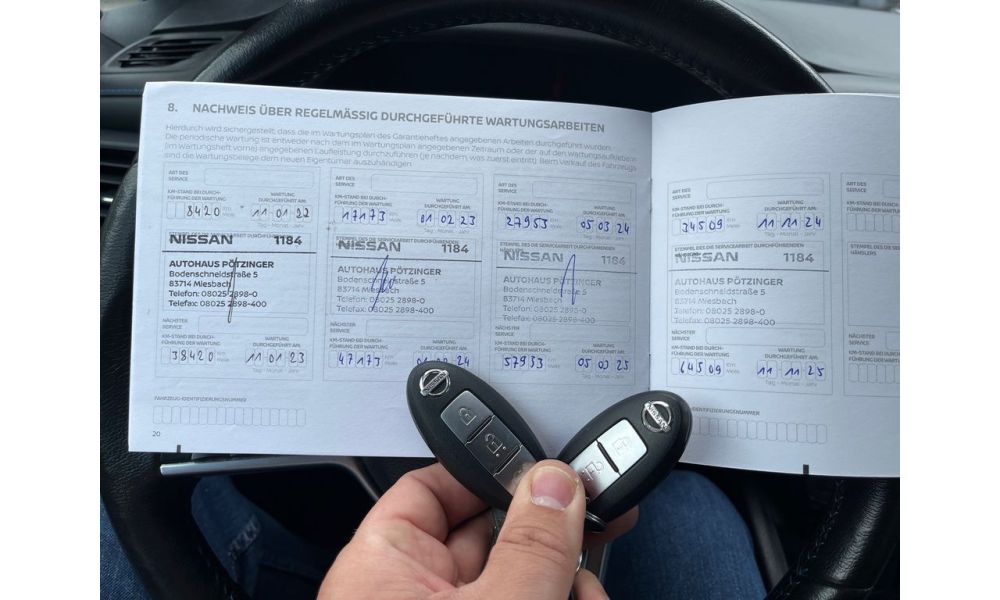 8. NACHWEIS ÜBER REGELMÄSSIG DURCHGEFÜHRTE WARTUNGSARBEITEN
Hierdurch wird sichergestellt, dass die im Wartungsplan des Garantieheftes angegebenen Arbeiten durchgeführt wurden.
Die periodische Wartung ist entweder nach dem im Wartungsplan angegebenen Zeitraum oder der auf den Wartungsaufklebern
(im Wartungsheft vorne) angegebenen Laufleistung durchzuführen (je nachdem, was zuerst eintritt). Beim Verkauf des Fahrzeugs
sind die Wartungsbelege dem neuen Eigentümer auszuhändigen.
ART DES
SERVICE
KM-STAND BEI DURCH-
FÜHRUNG DER WARTUNG
WARTUNG
DURCHGEFÜHRT AM:
8420 km Meile 11 01 22
Tag - Monat - Jahr
NISSAN 1184
AUTOHAUS PÖTZINGER
Bodenschneidstraße 5
83714 Miesbach
Telefon: 08025 2898-0
Telefax: 08025 2898-400
NÄCHSTER
SERVICE
KM-STAND BEI DURCH-
FÜHRUNG DER WARTUNG
WARTUNG
DURCHGEFÜHRT AM:
38420 km Meile 11 01 23
Tag - Monat - Jahr
FAHRZEUG-IDENTIFIZIERUNGSNUMMER
20
ART DES
SERVICE
KM-STAND BEI DURCH-
FÜHRUNG DER WARTUNG
WARTUNG
DURCHGEFÜHRT AM:
17173 km Meile 01 02 23
Tag - Monat - Jahr
STEMPEL DES DIE SERVICEARBEIT DURCHFÜHRENDEN
NISSAN 1184
AUTOHAUS PÖTZINGER
Bodenschneidstraße 5
83714 Miesbach
Telefon: 08025 2898-0
Telefax: 08025 2898-400
NÄCHSTER
SERVICE
KM-STAND BEI DURCH-
FÜHRUNG DER WARTUNG
WARTUNG
DURCHGEFÜHRT AM:
47173 km Meile 01 02 24
ART DES
SERVICE
KM-STAND BEI DURCH-
FÜHRUNG DER WARTUNG
WARTUNG
DURCHGEFÜHRT AM:
27953 km Meile 05 03 24
Tag - Monat - Jahr
STEMPEL DES DIE SERVICEARBEIT DURCHFÜHRENDEN
HÄNDLERS
NISSAN 1184
AUTOHAUS PÖTZINGER
Bodenschneidstraße 5
83714 Miesbach
Telefon: 08025 2898-0
Telefax: 08025 2898-400
NÄCHSTER
SERVICE
KM-STAND BEI DURCH-
FÜHRUNG DER WARTUNG
WARTUNG
DURCHGEFÜHRT AM:
57953 km Meile 05 03 25
Tag - Monat - Jahr
ART DES
SERVICE
KM-STAND BEI DURCH-
FÜHRUNG DER WARTUNG
WARTUNG
DURCHGEFÜHRT AM:
34509 km Meile 11 11 24
Tag - Monat - Jahr
STEMPEL DES DIE SERVICEARBEIT DURCHFÜHRENDEN
NISSAN 1184
AUTOHAUS PÖTZINGER
Bodenschneidstraße 5
83714 Miesbach
Telefon: 08025 2898-0
Telefax: 08025 2898-400
NÄCHSTER
SERVICE
KM-STAND BEI DURCH-
FÜHRUNG DER WARTUNG
WARTUNG
DURCHGEFÜHRT AM:
64509 km Meile 11 11 25
Tag - Monat - Jahr
IDENTIFIZIERUNGSNUMMER
ART DES
SERVICE
KM-STAND BEI DURCH-
FÜHRUNG DER WARTUNG
HÄNDLERS
NÄCHSTER
SERVICE
KM-STAND BEI DURCH-